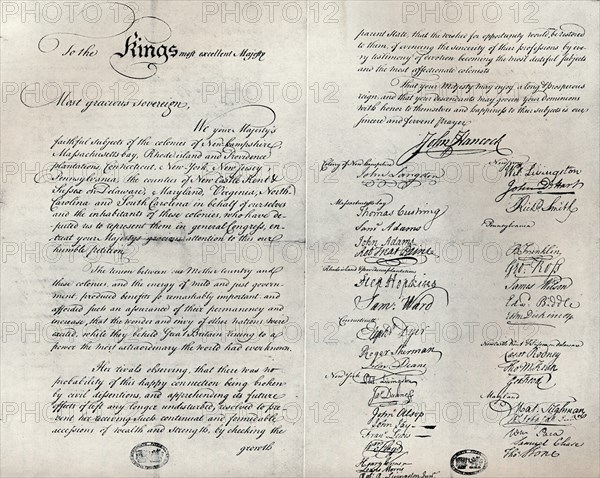 To the Kings most excellent Majesty
Most gracious Sovereign,
We your Majesty's
faithful subjects of the colonies of New hampshire,
Massachusetts bay, Rhode island and Providence
plantations, Connecticut, New York, New Jersey,
Pennsylvania, the counties of New Castle Kent &
Sussex on Delaware, Maryland, Virginia, North
Carolina and South Carolina in behalf of ourselves
and the inhabitants of these colonies, who have de-
puted us to represent them in general Congress, en-
treat your Majestys gracious attention to this our
humble petition.
The union between our Mother Country and
these colonies, and the energy of mild and just govern-
ment, produced benefits so remarkably important and
afforded such an assurance of their permanency and
increase, that the wonder and envy of other nations were
excited, while they beheld Great Britain rising to a
power the most extraordinary the world had ever known.
Her rivals observing, that there was no
probability of this happy connection being broken
by civil dissentions, and apprehending its future
effects if left any longer undisturbed, resolved to pre-
vent her receiving such continual and formidable
accessions of wealth and strength, by checking the
growth
parent State, that the wished for opportunity would be restored
to them, of evincing the sincerity of their professions by eve-
ry testimony of devotion becoming the most dutiful subjects
and the most affectionate colonists
That your Majesty may enjoy a long & prosperous
reign, and that your descendants may govern your Dominions
with honor to themselves and happiness to their subjects is our
sincere and fervent prayer.
John Hancock
Colony of New hampshire
John Langdon
Massachusetts bay
Thomas Cushing
Saml Adams
John Adams
Robt Treat Paine
Rhode island & providence plantations
Step Hopkins
Sam: Ward
Connecticut
Elipht Dyer
Roger Sherman
Silas Deane
New York
Phil. Livingston
Jas Duane
John Alsop
John Jay
Fras Lewis
Wm Floyd
Lewis Morris
Robt R Livingston Junr
New Jersey
Wil: Livingston
John D Hart
Richd Smith
Pennsylvania
B Franklin
Geo: Ross
James Wilson
Edwd Biddle
John Dickinson
Newcastle Kent & Sussex on Delaware
Caesar Rodney
Tho M:Kean
Geo: Read
Maryland
Mat. Tilghman
Wm Paca
Samuel Chase
Thos Stone
PHOTO12